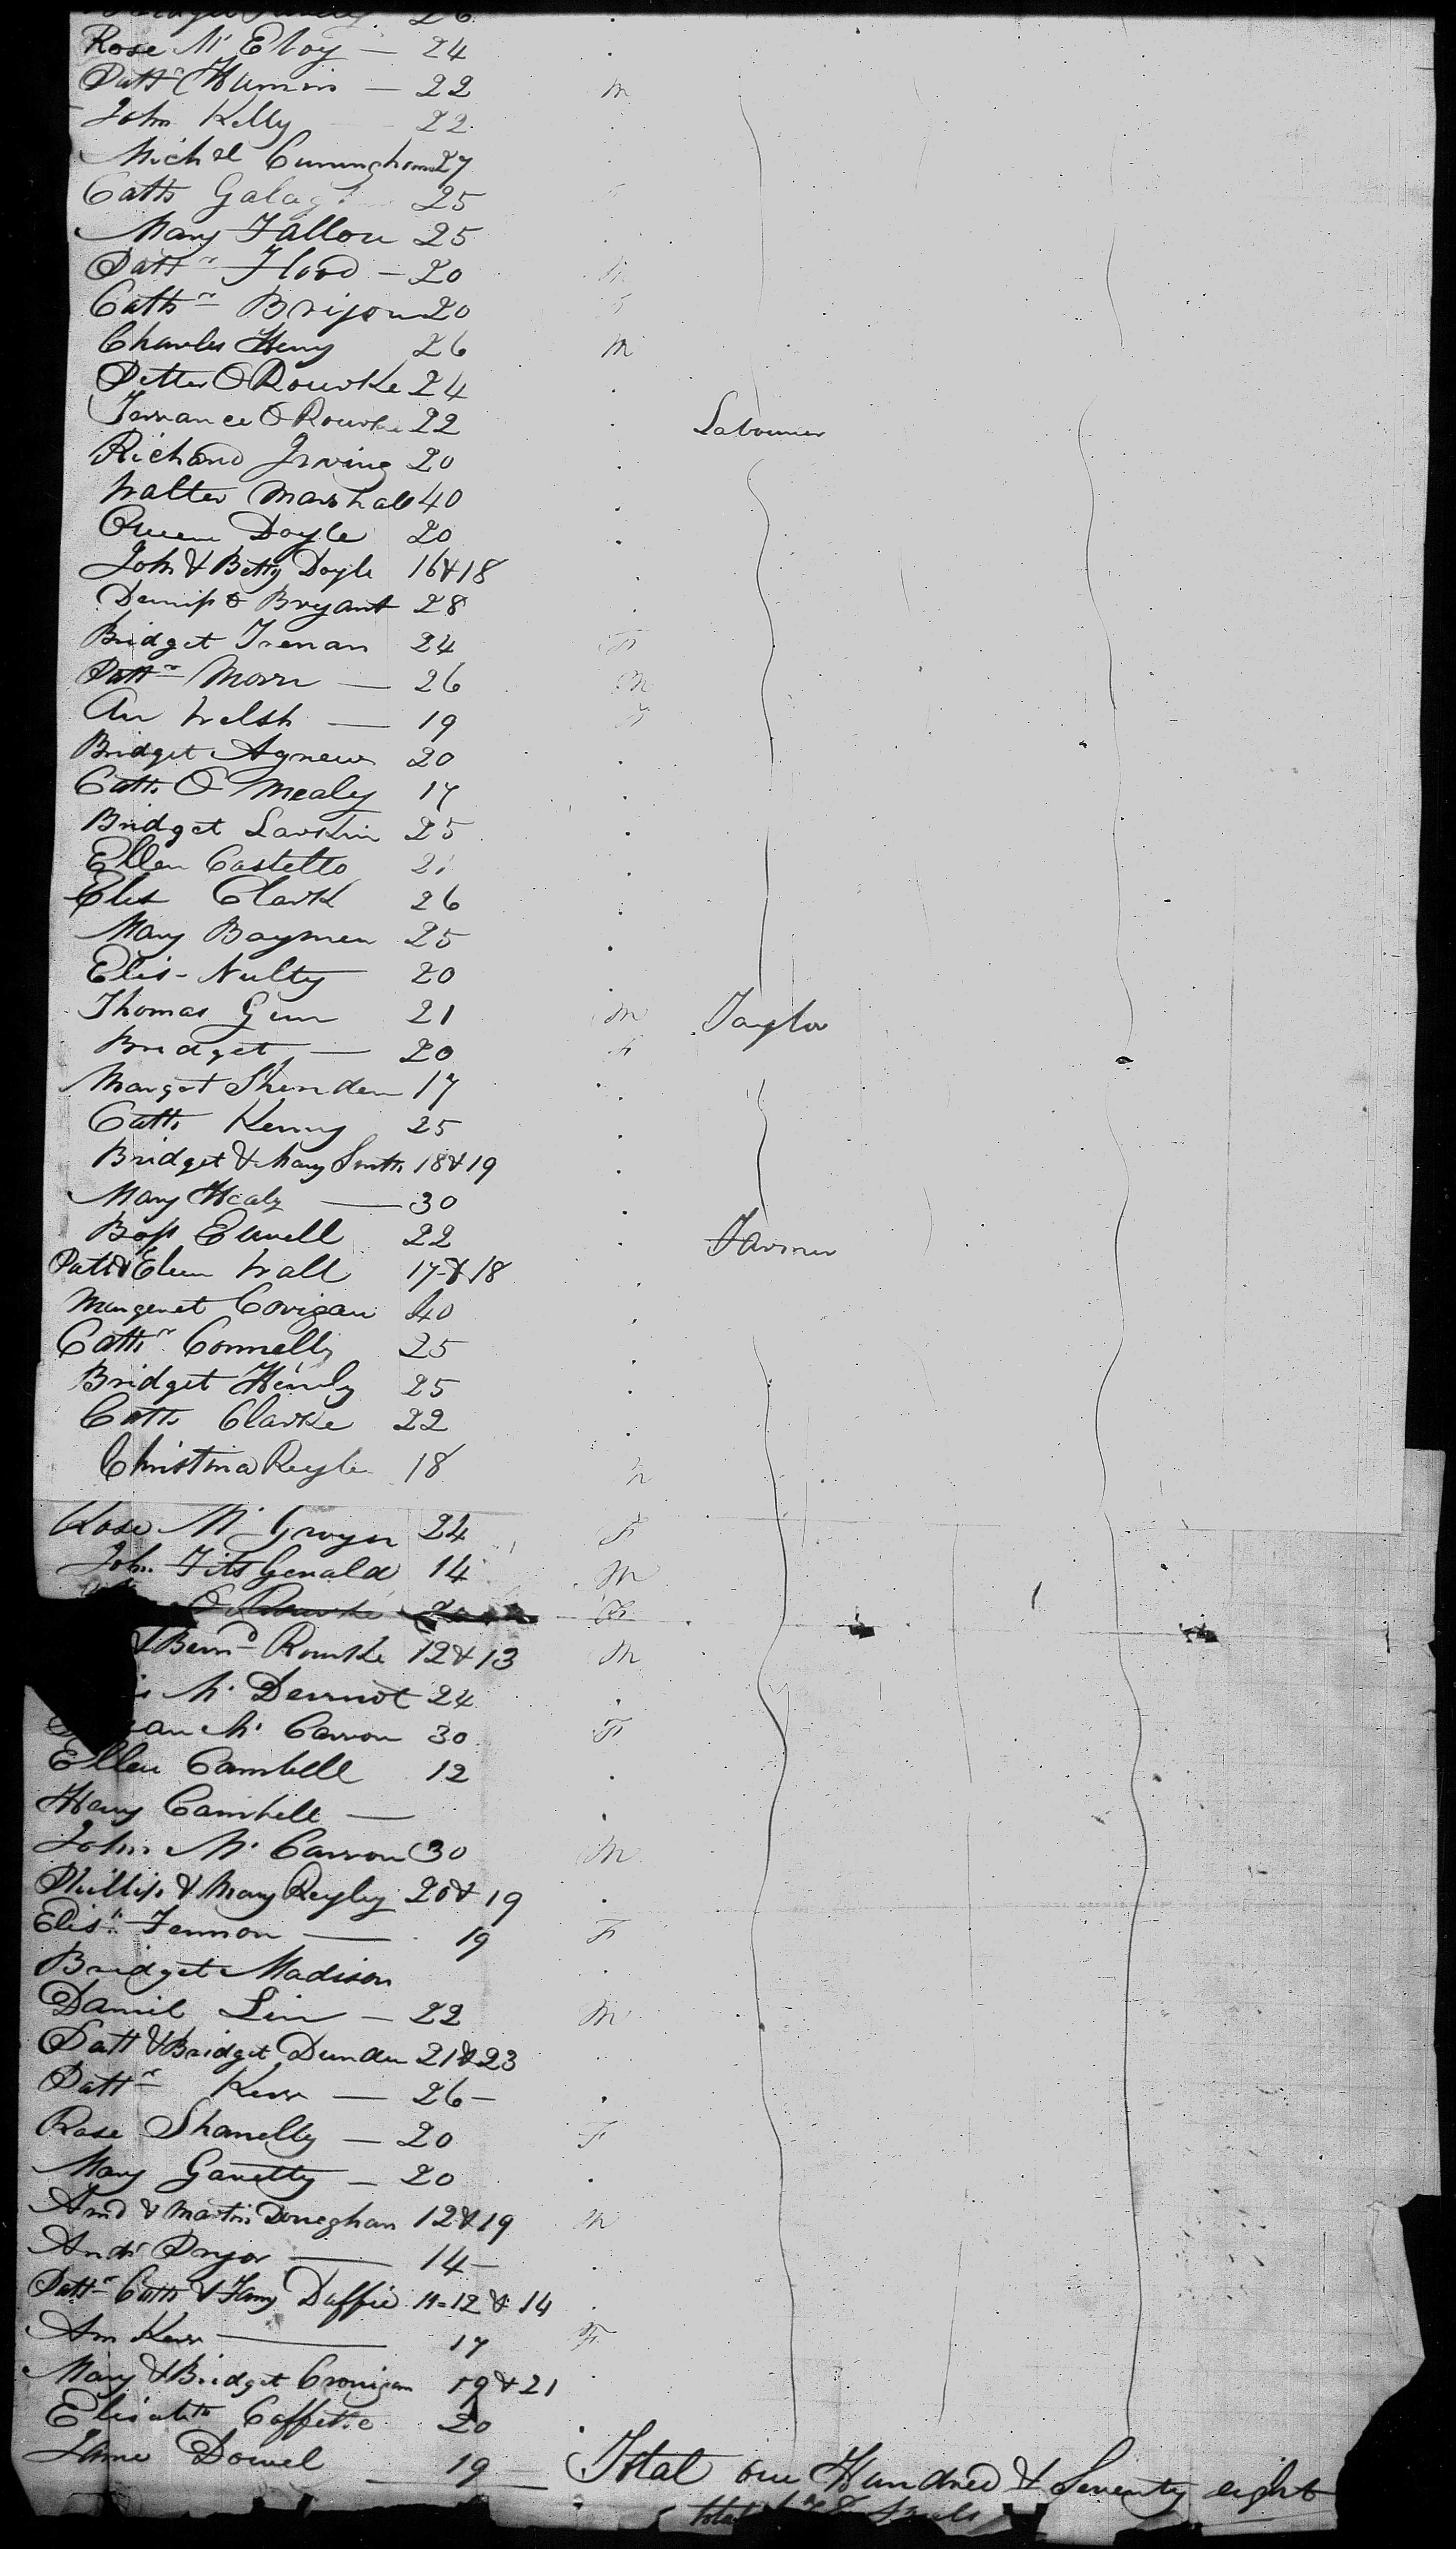 26
Rose Mc Eloy — 24
Patt 22 m
John Kelly 22
Mich al Cuningham 27
Cath 25
Mary Fallon 25
Pattr Flood — 20 m
Cathr Brijon 20 F
Charles Henry 26 m
Petter O Rourke 24
Terrance O Rourke 22 Labourer
Richard Irving 20
Walter Marshall 40
Doyle 20
John & Betty Doyle 16 & 18
Dennis O Bryant 28
Bridget 24 F
Pattr Morn — 26 m
An Welsh — 19 F
Bridget Agnew 20
Cath O Mealy 17
Bridget Larkin 25
Ellen Costello 21
Elis Clark 26
Mary Baymen 25
Elis- Nulty 20
Thomas Gun 21 m Taylor
Bridget — 20 F
Marget 17
Cath Kenny 25
Bridget & Mary Smith 18 & 19
Mary Healy — 30
Ross 22 Farmer
Patt & Elen Wall 17 & 18
Margeret Corigan 40
Cathr Connelly 25
Bridget 25
Cath Clarke 22
Christina Reyle 18
Rose Mc 24 F
John FitsGerald 14 m
O Rourke
& Bernd Rourke 12 & 13 m
Mc Dermot 24
Mc Carron 30 F
Ellen Cambell 12
Cambell —
John Mc Carron 30 m
Phillip & Mary Reyley 20 & 19
Elisth Fennon — 19 F
Bridget Madison
Daniel Lin — 22 m
Patt & Bridget Dundon 21 & 23
Pattr Kerr — 26 —
Rose Shanelly — 20 F
Mary Garretty — 20
And & Martin Doneghan 12 & 19 m
Andr Pryor — 14 —
Pattr Cath & Duffie 11=12 & 14
Ann Kerr — 17 F
Mary & Bridget Cronigan 19 & 21
Elisabth Caffette 20
Jame Dowel 19 Total one Hundred & Seventy eight
total 178 Souls